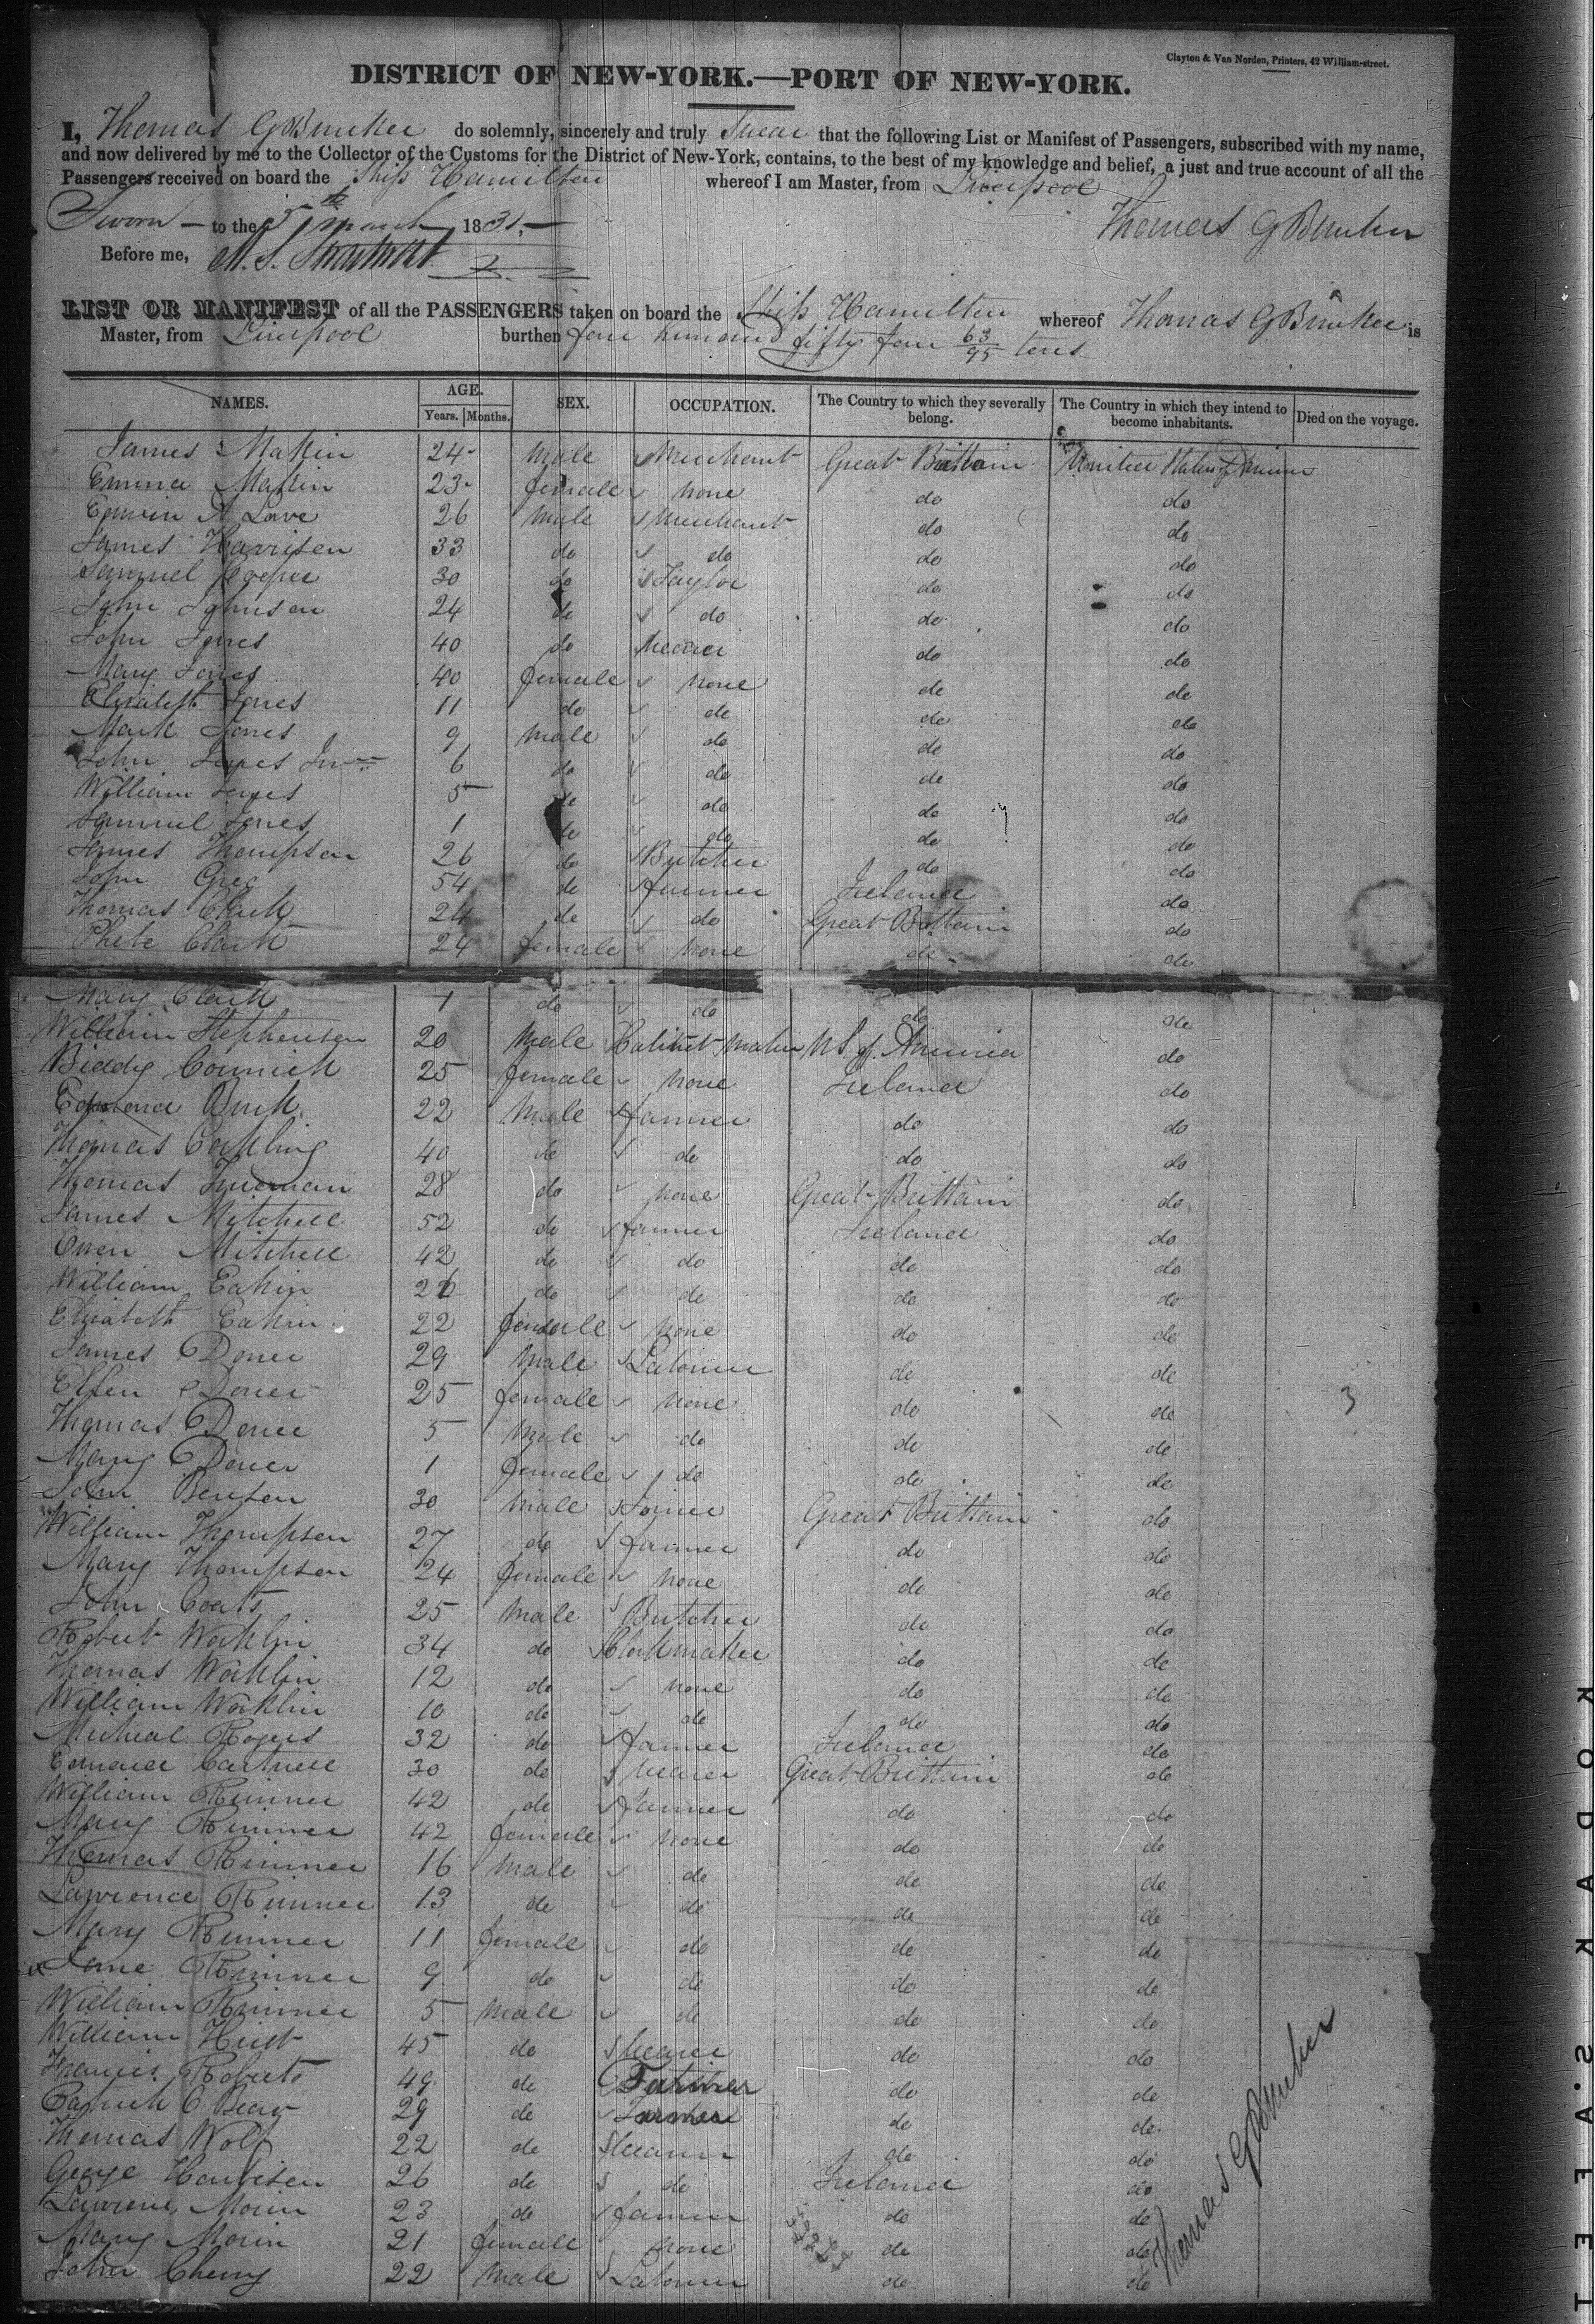 Clayton & Van Norden, Printers, 42 William-street.
DISTRICT OF NEW-YORK.—PORT OF NEW-YORK.
I, Thomas G Bunker do solemnly, sincerely and truly Swear that the following List or Manifest of Passengers, subscribed with my name,
and now delivered by me to the Collector of the Customs for the District of New-York, contains, to the best of my knowledge and belief, a just and true account of all the
Passengers received on board the Ship Hamilton whereof I am Master, from Liverpool
Sworn — to the 5th March 1831,—
Thomas G Bunker
Before me,
LIST OR MANIFEST of all the PASSENGERS taken on board the Ship Hamilton whereof Thomas G Bunker is
Master, from Liverpool burthen four hundred fifty four 63/95 tons
NAMES. AGE. Years. Months. SEX. OCCUPATION. The Country to which they severally belong. The Country in which they intend to become inhabitants. Died on the voyage.
James Makin 24 Male Merchant Great Brittain United States of America
Emma Makin 23 female none do do
Edwin A Love 26 Male Merchant do do
James Harrison 33 do do do do
Samuel Cooper 30 do Taylor do do
John Johnson 24 do do do do
John Jones 40 do do do
Mary Jones 40 female none do do
Elizabeth Jones 11 do do do do
Mark Jones 9 Male do do do
John Jones Jun 6 do do do do
William Jones 5 do do do do
Samuel Jones 1 do do do do
James Thompson 26 do Butcher do do
John 54 do farmer Ireland do
Thomas Clark 24 do do Great Brittain do
Phebe Clark 24 female none do do
Mary Clark 1 do do do do
William Stephenson 20 Male Cabinet Maker U S. of America do
Biddy Cormick 25 female none Ireland do
Edmond Burk 22 Male farmer do do
Thomas 40 do do do do
Thomas Trueman 28 do none Great Brittain do
James Mitchell 52 do farmer Ireland do
Owen Mitchell 42 do do do do
William Eakin 26 do do do do
Elizabeth Eakin 22 female none do do
James Doner 29 Male Labourer do do
Ellen Doner 25 female none do do
Thomas Doner 5 Male do do do
Mary Doner 1 female do do do
John Benson 30 Male Joiner Great Brittain do
William Thompson 27 do farmer do do
Mary Thompson 24 female none do do
John Coats 25 Male Butcher do do
Robert Wocklin 34 do Clockmaker do do
Thomas Wocklin 12 do none do do
William Wocklin 10 do do do do
Micheal Rogers 32 do farmer Ireland do
30 do Great Brittain do
William Rimmer 42 do farmer do do
Mary Rimmer 42 female none do do
Thomas Rimmer 16 Male do do do
Lawrence Rimmer 13 do do do do
Mary Rimmer 11 female do do do
Jane Rimmer 9 do do do do
William Rimmer 5 Male do do do
William 45 do do do
Francis Roberts 49 do Farmer do do
Patrick O 29 do Farmer do do
Thomas Wolf 22 do do do
George Harrison 26 do do Ireland do
Lawrence Morin 23 do farmer do do
Mary Morin 21 female none do do
John Cherry 22 Male Labourer do do
Thomas G Bunker
3
KODAK S.A.F.E.T